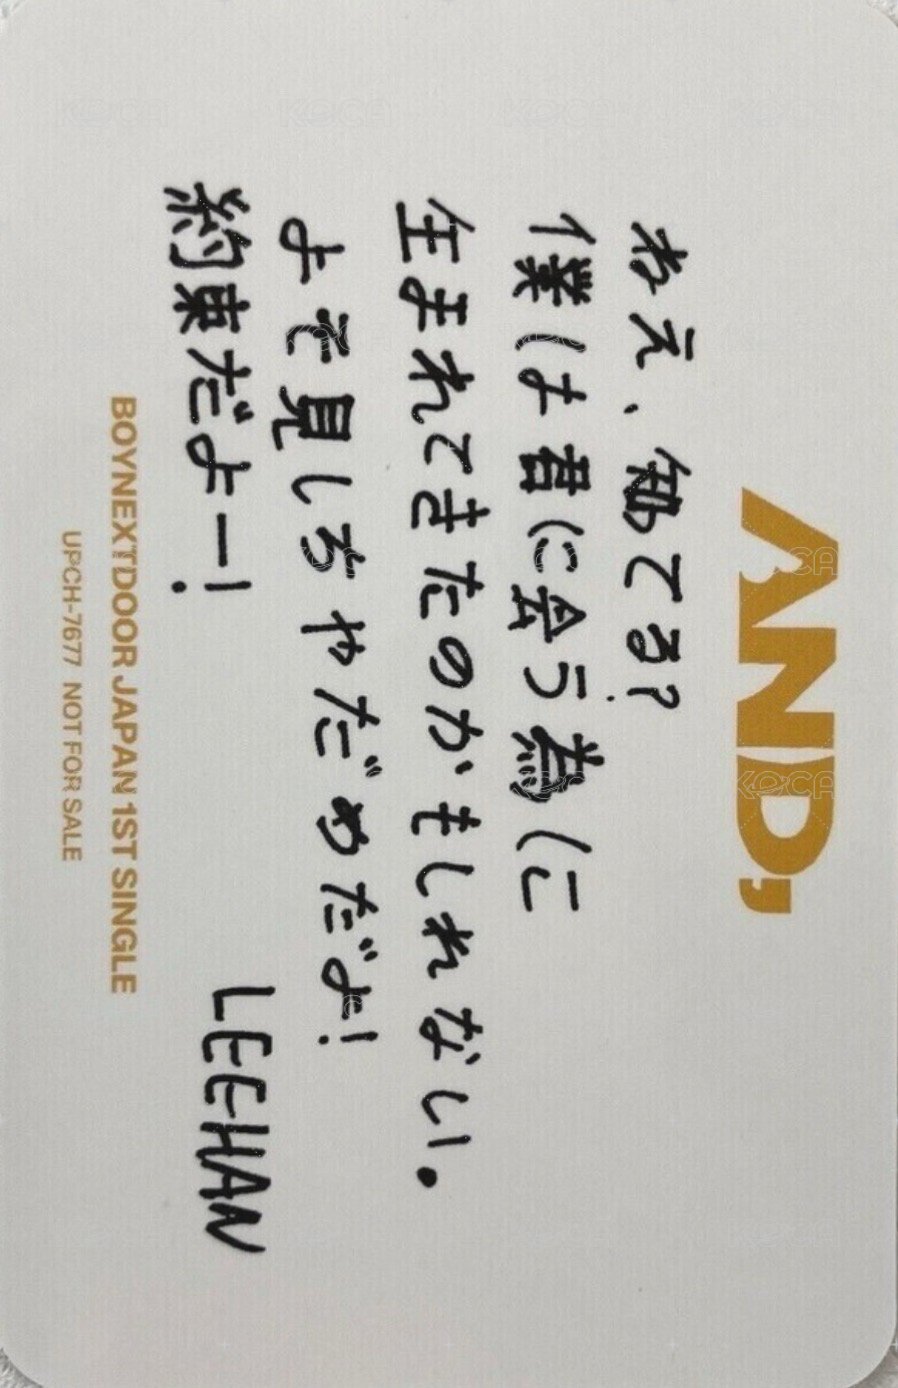 AND,
ねえ、知てる?
僕は君に会う為に
生まれてきたのかもしれない。
よそ見しちゃだめだよ!
約束だよー!
LEEHAN
BOYNEXTDOOR JAPAN 1ST SINGLE
UPCH-7677 NOT FOR SALE
KOCA